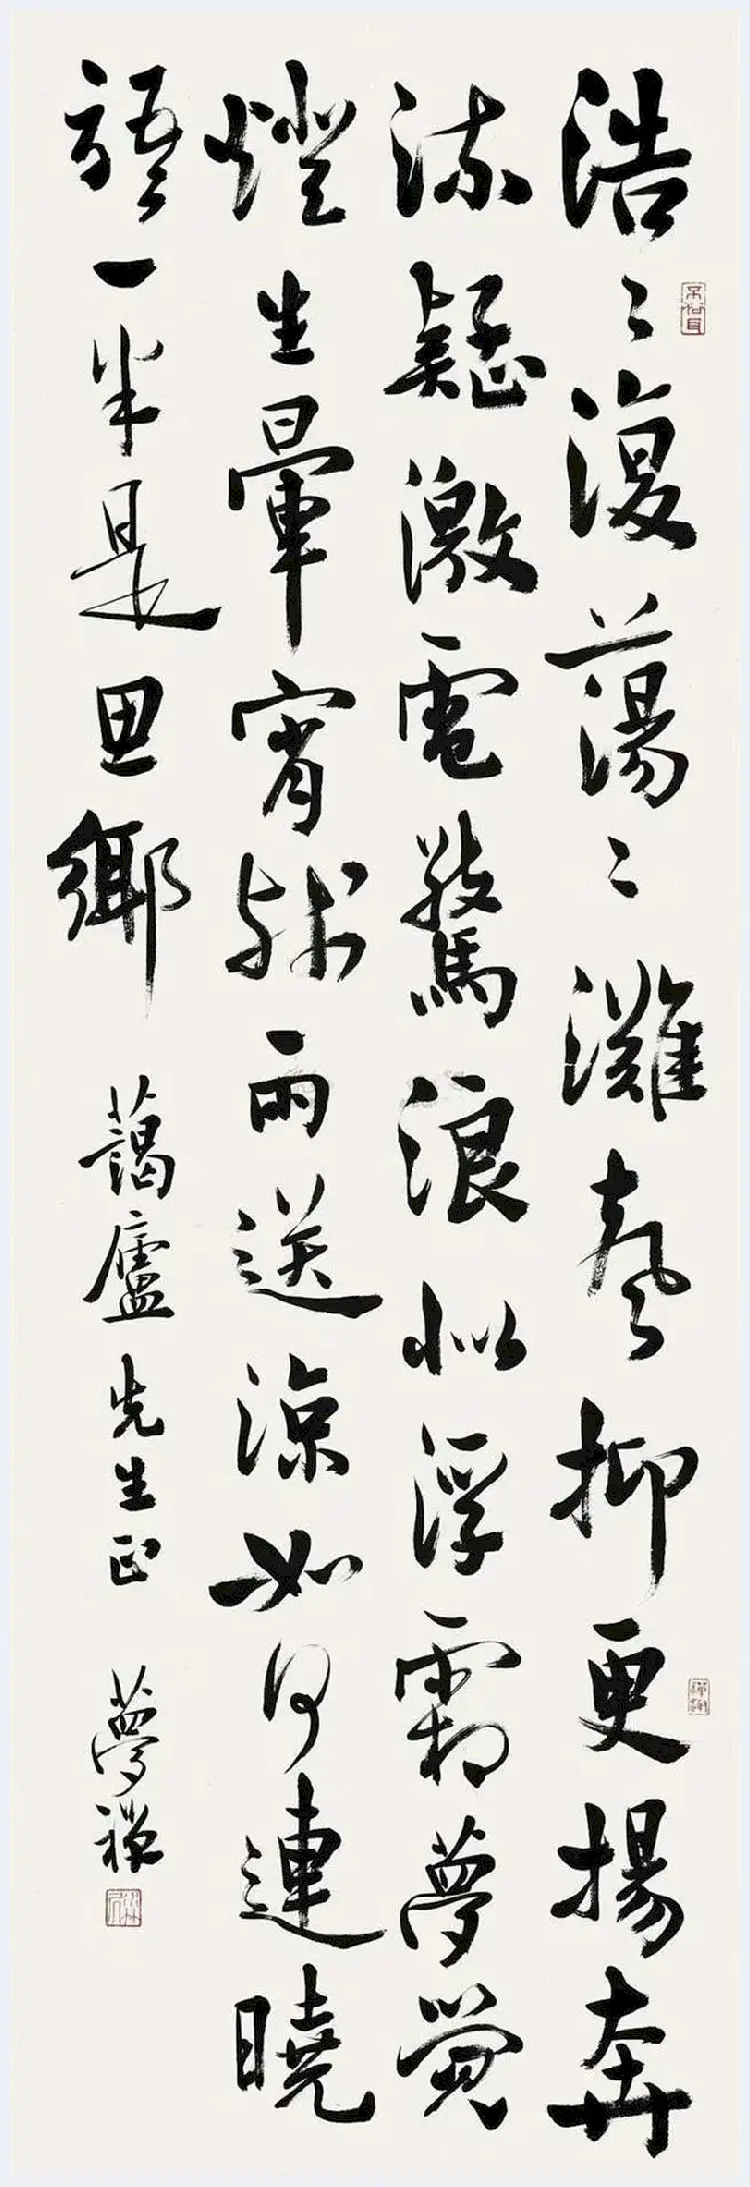 浩〻復蕩〻灘聲抑更揚奔
流疑激電驚浪似浮霜夢覺
燈生暈宵殘雨送涼如何連曉
語一半是思鄉 藹廬先生正 夢禪